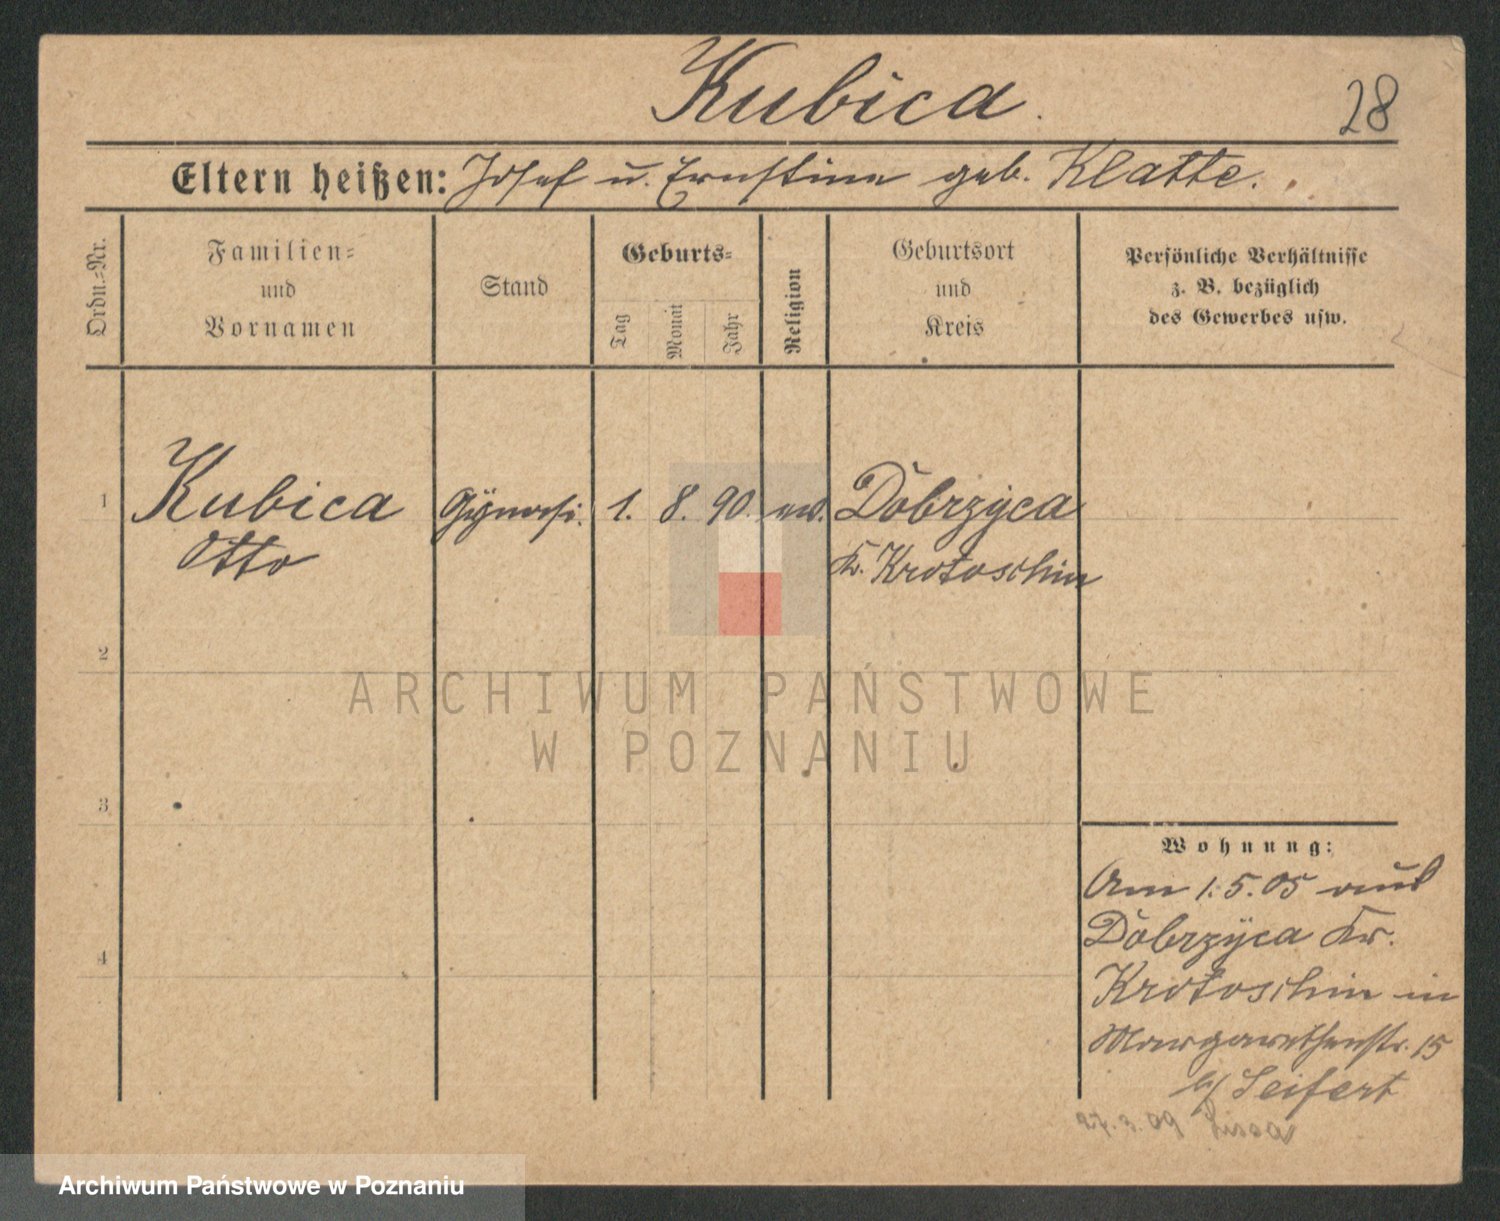 Kubica.
28
Eltern heißen: Josef u. Ernstine geb. Klatte.
Ordn.-Nr.
Familien-
und
Vornamen
Stand
Geburts-
Tag
Monat
Jahr
Religion
Geburtsort
und
Kreis
Persönliche Verhältnisse
z. B. bezüglich
des Gewerbes usw.
1 Kubica Gÿmnasi. 1. 8. 90. ev. Dobrzÿca
Otto Kr. Krotoschin
2
ARCHIWUM PAŃSTWOWE
W POZNANIU
3
Wohnung:
Am 1.5.05 aus
Dobrzÿca Kr.
4
Krotoschin in
Margarethenstr. 15
b/ Seifert
27.3.09 Lissa
Archiwum Państwowe w Poznaniu